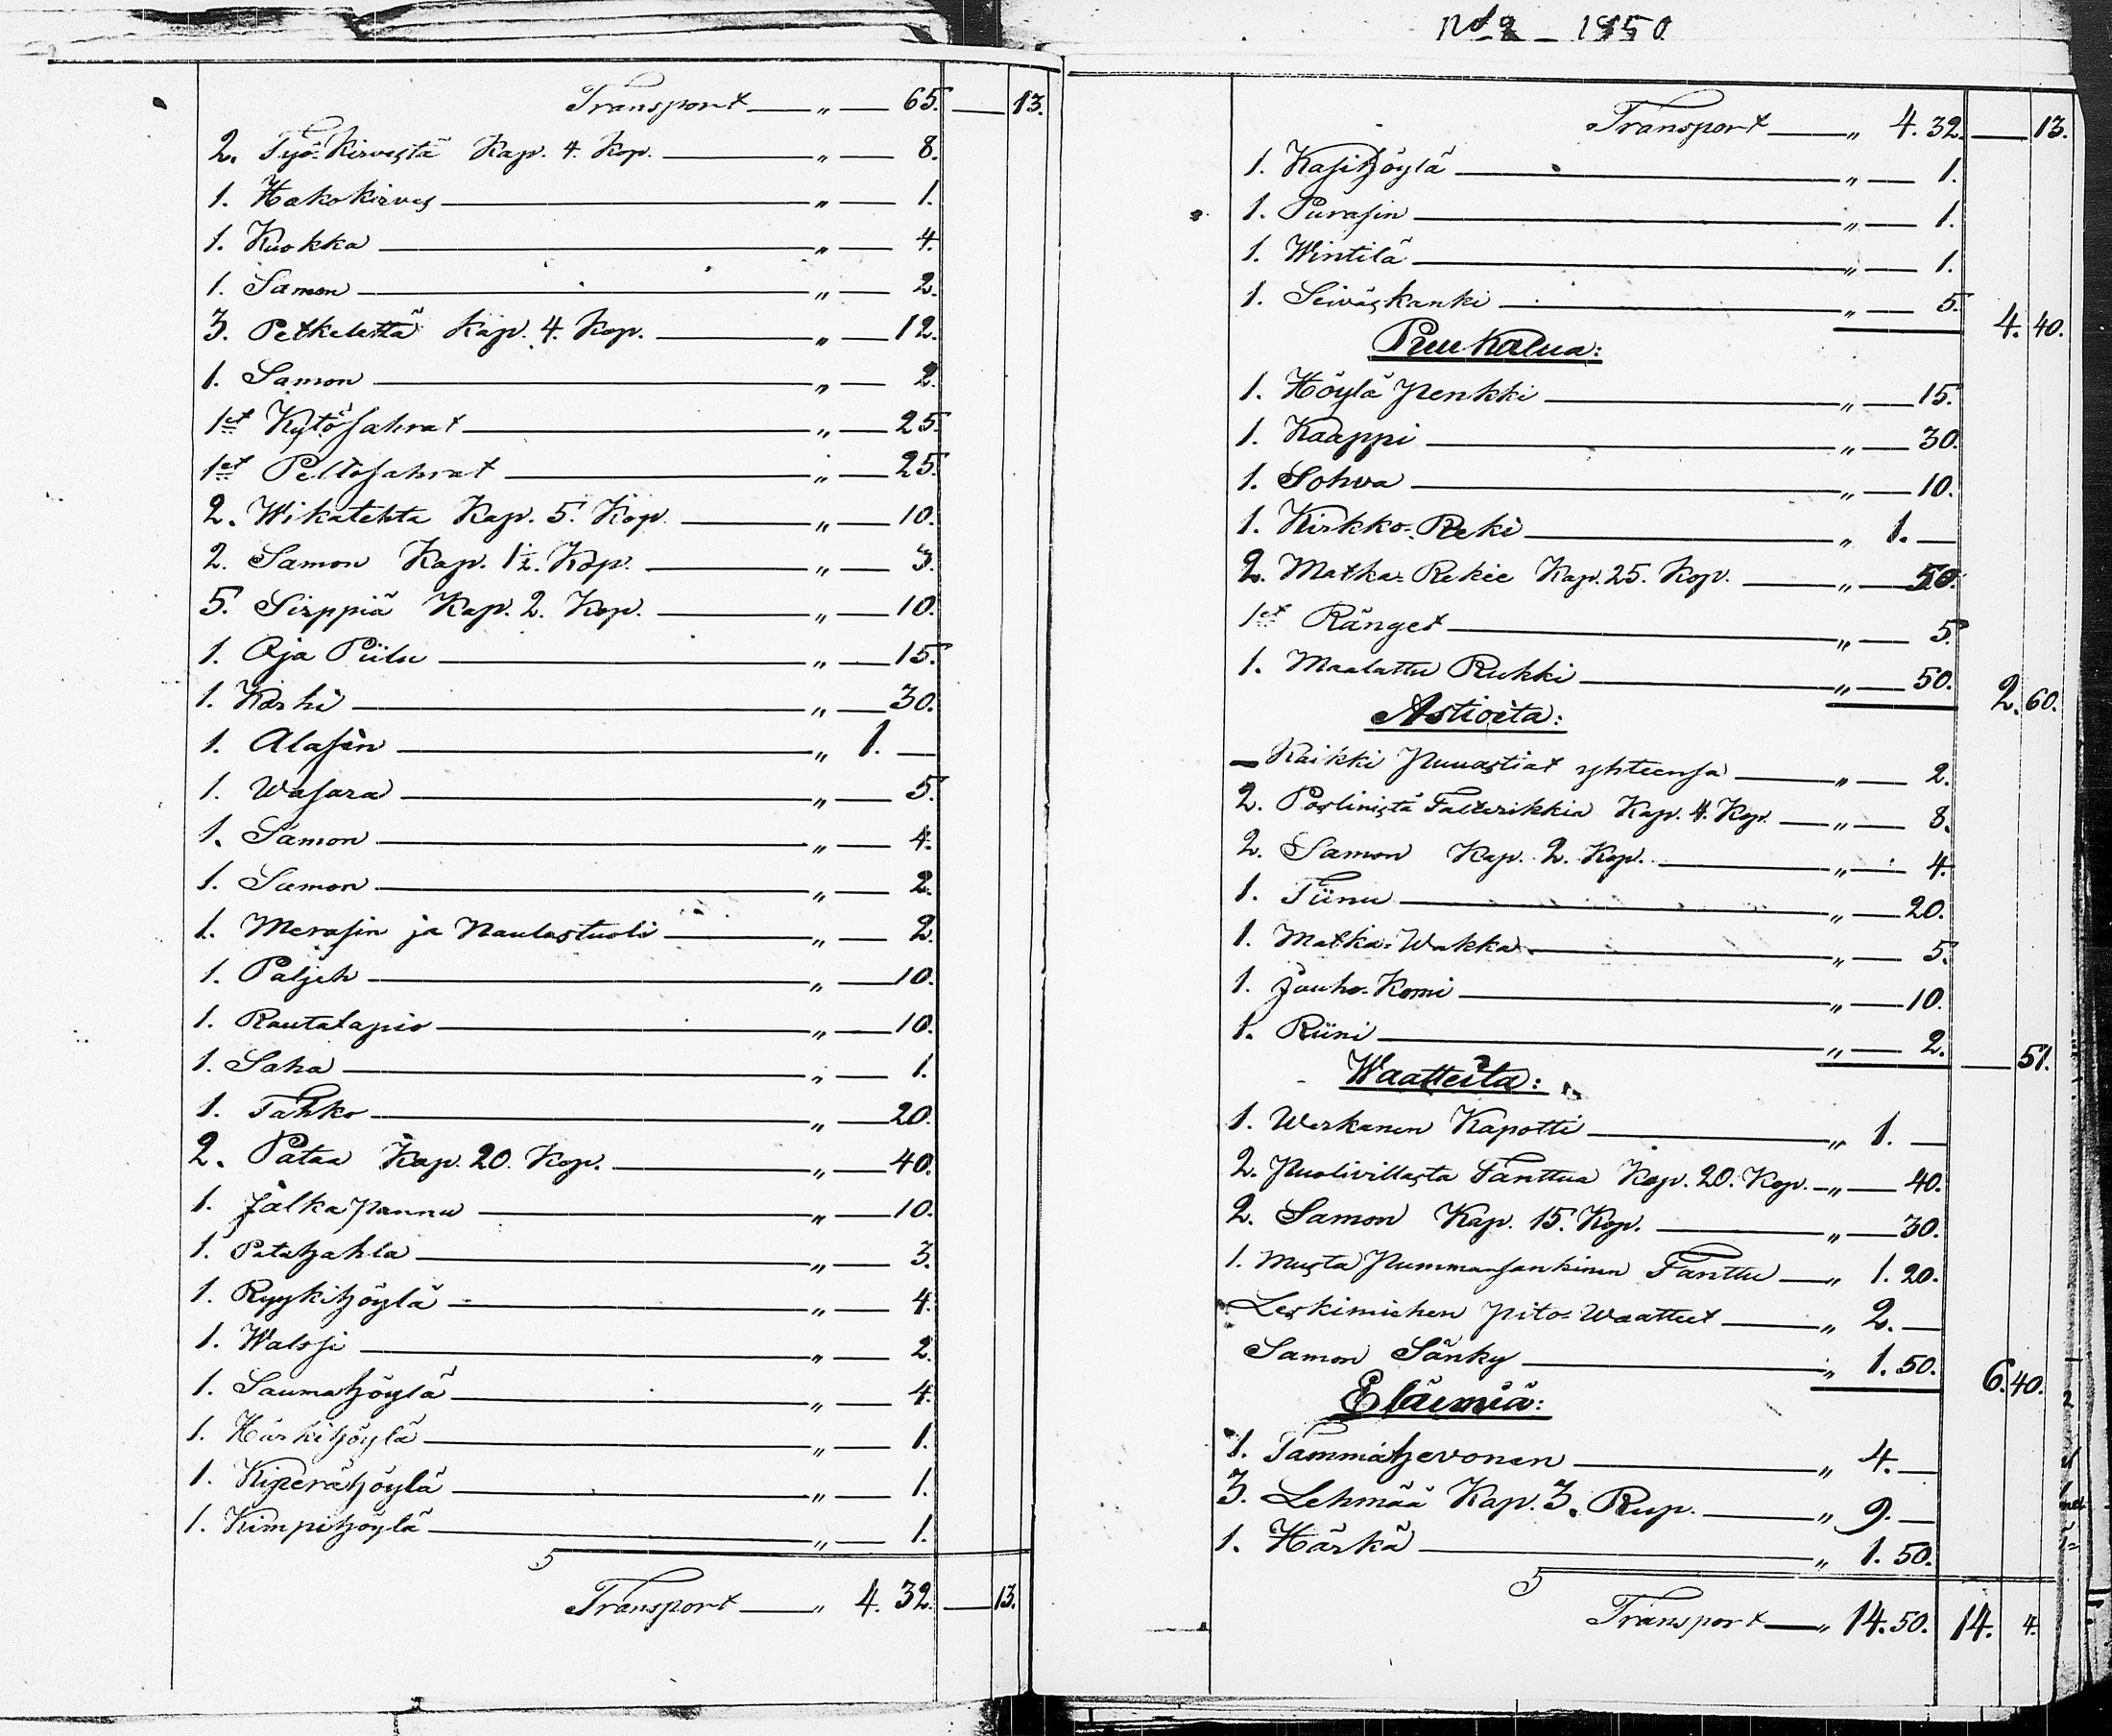 Transport „ 65. 13.
2. Työ-Kirvestä Kap. 4. Kop. „ 8.
1. Hakokirves „ 1.
1. Kuokka „ 4.
1. Samon „ 2.
3. Petkeletta Kap. 4. Kop. „ 12.
1. Samon „ 2.
1et Kytösahrat „ 25.
1et Peltosahrat „ 25.
2. Wikatehta Kap. 5. Kop. „ 10.
2. Samon Kap. 1½. Kop. „ 3.
5. Sirppiä Kap. 2. Kop. „ 10.
1. Aja Piilu „ 15.
1. Karhi „ 30.
1. Alasin „ 1. —
1. Wasara „ 5.
1. Samon „ 4.
1. Samon „ 2.
1. Merasin ja Naulastuoli „ 2.
1. Paljeh „ 10.
1. Rautalapio „ 10.
1. Saha „ 1.
1. Tahko „ 20.
2. Pataa Kap. 20. Kop. „ 40.
1. Jalkapannu „ 10.
1. Patahahla „ 3.
1. Ryykihöylä „ 4.
1. Walssi „ 2.
1. Saumahöylä „ 4.
1. Härkihöylä „ 1.
1. Kiperähöylä „ 1.
1. Kimpihöylä „ 1.
Transport „ 4. 32. 13.
No 2 — 1850
Transport „ 4. 32. 13.
1. Kasihöylä „ 1.
1. Purasin „ 1.
1. Wintilä „ 1.
1. Seiväskanki „ 5. 4. 40.
Puukalua:
1. Höyläpenkki „ 15.
1. Kaappi „ 30.
1. Sohva „ 10.
1. Kirkko-Reki „ 1. —
2. Matka-Rekie Kap. 25. Kop. „ 50.
1et Ränget „ 5.
1. Maalattu Rukki „ 50. 2. 60.
Astioita:
— Kaikki Puuastiat yhteensä „ 2.
2. Poslinista Falterikkia Kap. 4. Kop. „ 8.
2. Samon Kap. 2. Kop. „ 4.
1. Tiinu „ 20.
1. Matka-Wakka „ 5.
1. Jauho-Komi „ 10.
1. Riini „ 2. 51.
Waatteita:
1. Werkanen Kapotti „ 1. —
2. Puolivillasta Tanttua Kap. 20. Kop. „ 40.
2. Samon Kap. 15. Kop. „ 30.
1. Musta Tanttu „ 1. 20.
Leskimiehen pito-Waatteet „ 2. —
Samon Sänky „ 1. 50. 6. 40.
Eläimiä:
1. Tammahevonen „ 4. —
3. Lehmää Kap. 3. Rup. „ 9. —
1. Härkä „ 1. 50.
Transport „ 14. 50. 14. 4.